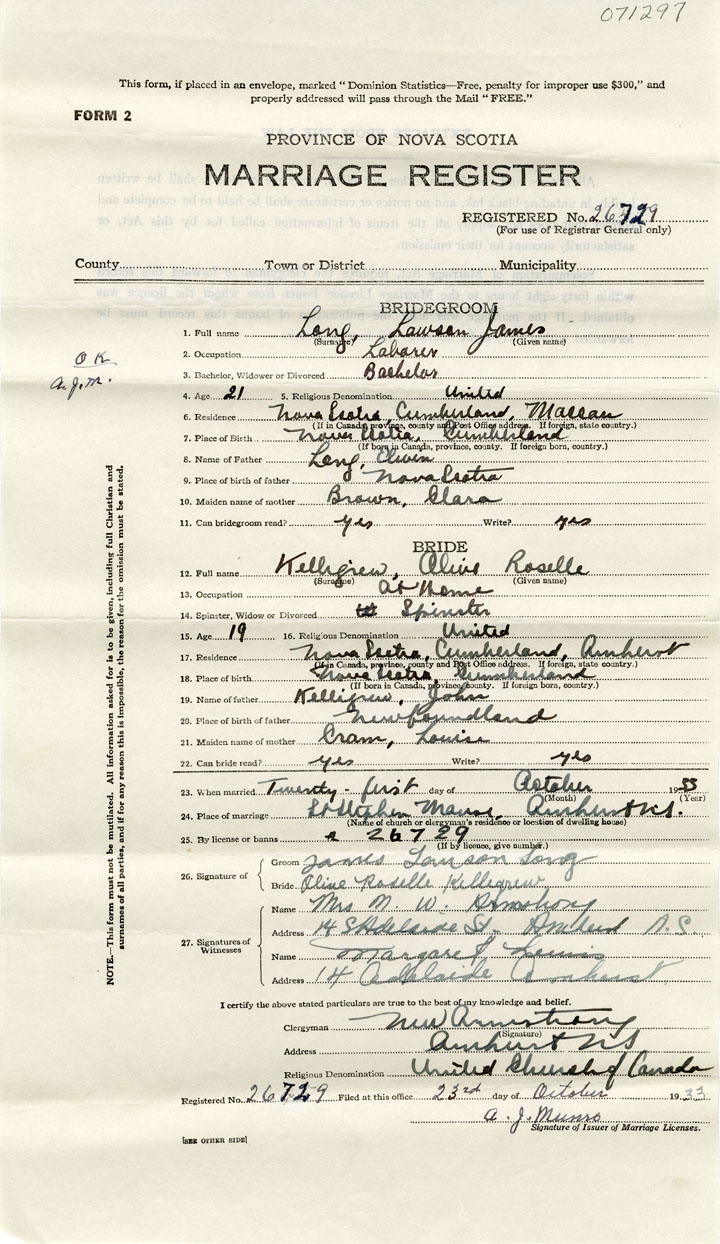 071297
This form, if placed in an envelope, marked " Dominion Statistics—Free, penalty for improper use $300," and
properly addressed will pass through the Mail " FREE."
FORM 2
PROVINCE OF NOVA SCOTIA
MARRIAGE REGISTER
REGISTERED No. 26729
(For use of Registrar General only)
County Town or District Municipality
BRIDEGROOM
1. Full name Long, Lawson James
(Surname) (Given name)
2. Occupation Laborer
3. Bachelor, Widower or Divorced Bachelor
O K
A. J. M.
4. Age 21 5. Religious Denomination United
6. Residence Nova Scotia, Cumberland, Maccan
(If in Canada, province, county and Post Office address. If foreign, state country.)
7. Place of Birth Nova Scotia, Cumberland
(If born in Canada, province, county. If foreign born, country.)
8. Name of Father Long,
9. Place of birth of father Nova Scotia
10. Maiden name of mother Brown, Clara
11. Can bridegroom read? yes Write? yes
BRIDE
12. Full name Kelligrew, Olive Roselle
(Surname) (Given name)
13. Occupation At Home
14. Spinster, Widow or Divorced Spinster
15. Age 19 16. Religious Denomination United
17. Residence Nova Scotia, Cumberland, Amherst
(If in Canada, province, county and Post Office address. If foreign, state country.)
18. Place of birth Nova Scotia, Cumberland
(If born in Canada, province, county. If foreign born, country.)
19. Name of father Kelligrew, John
20. Place of birth of father Newfoundland
21. Maiden name of mother Cram, Louise
22. Can bride read? yes Write? yes
23. When married Twenty-first day of October 1933
(Month) (Year)
24. Place of marriage St Stephen Manse, Amherst N.S.
(Name of church or clergyman's residence or location of dwelling house)
25. By license or banns 26729
(If by licence, give number.)
26. Signature of Groom James Lawson Long
Bride Olive Roselle Kellegrew
27. Signatures of Witnesses Name Mrs M. W. Armstrong
Address 14 Adelaide St. Amherst N.S.
Name Margaret Lewis
Address 14 Adelaide Amherst
NOTE.—This form must not be mutilated. All information asked for is to be given, including full Christian and
surnames of all parties, and if for any reason this is impossible, the reason for the omission must be stated.
I certify the above stated particulars are true to the best of my knowledge and belief.
Clergyman Armstrong
(Signature)
Address Amherst N S
Religious Denomination United Church of Canada
Registered No. 26729 Filed at this office 23rd day of October 1933
A. J. Munro
Signature of Issuer of Marriage Licenses.
[SEE OTHER SIDE]